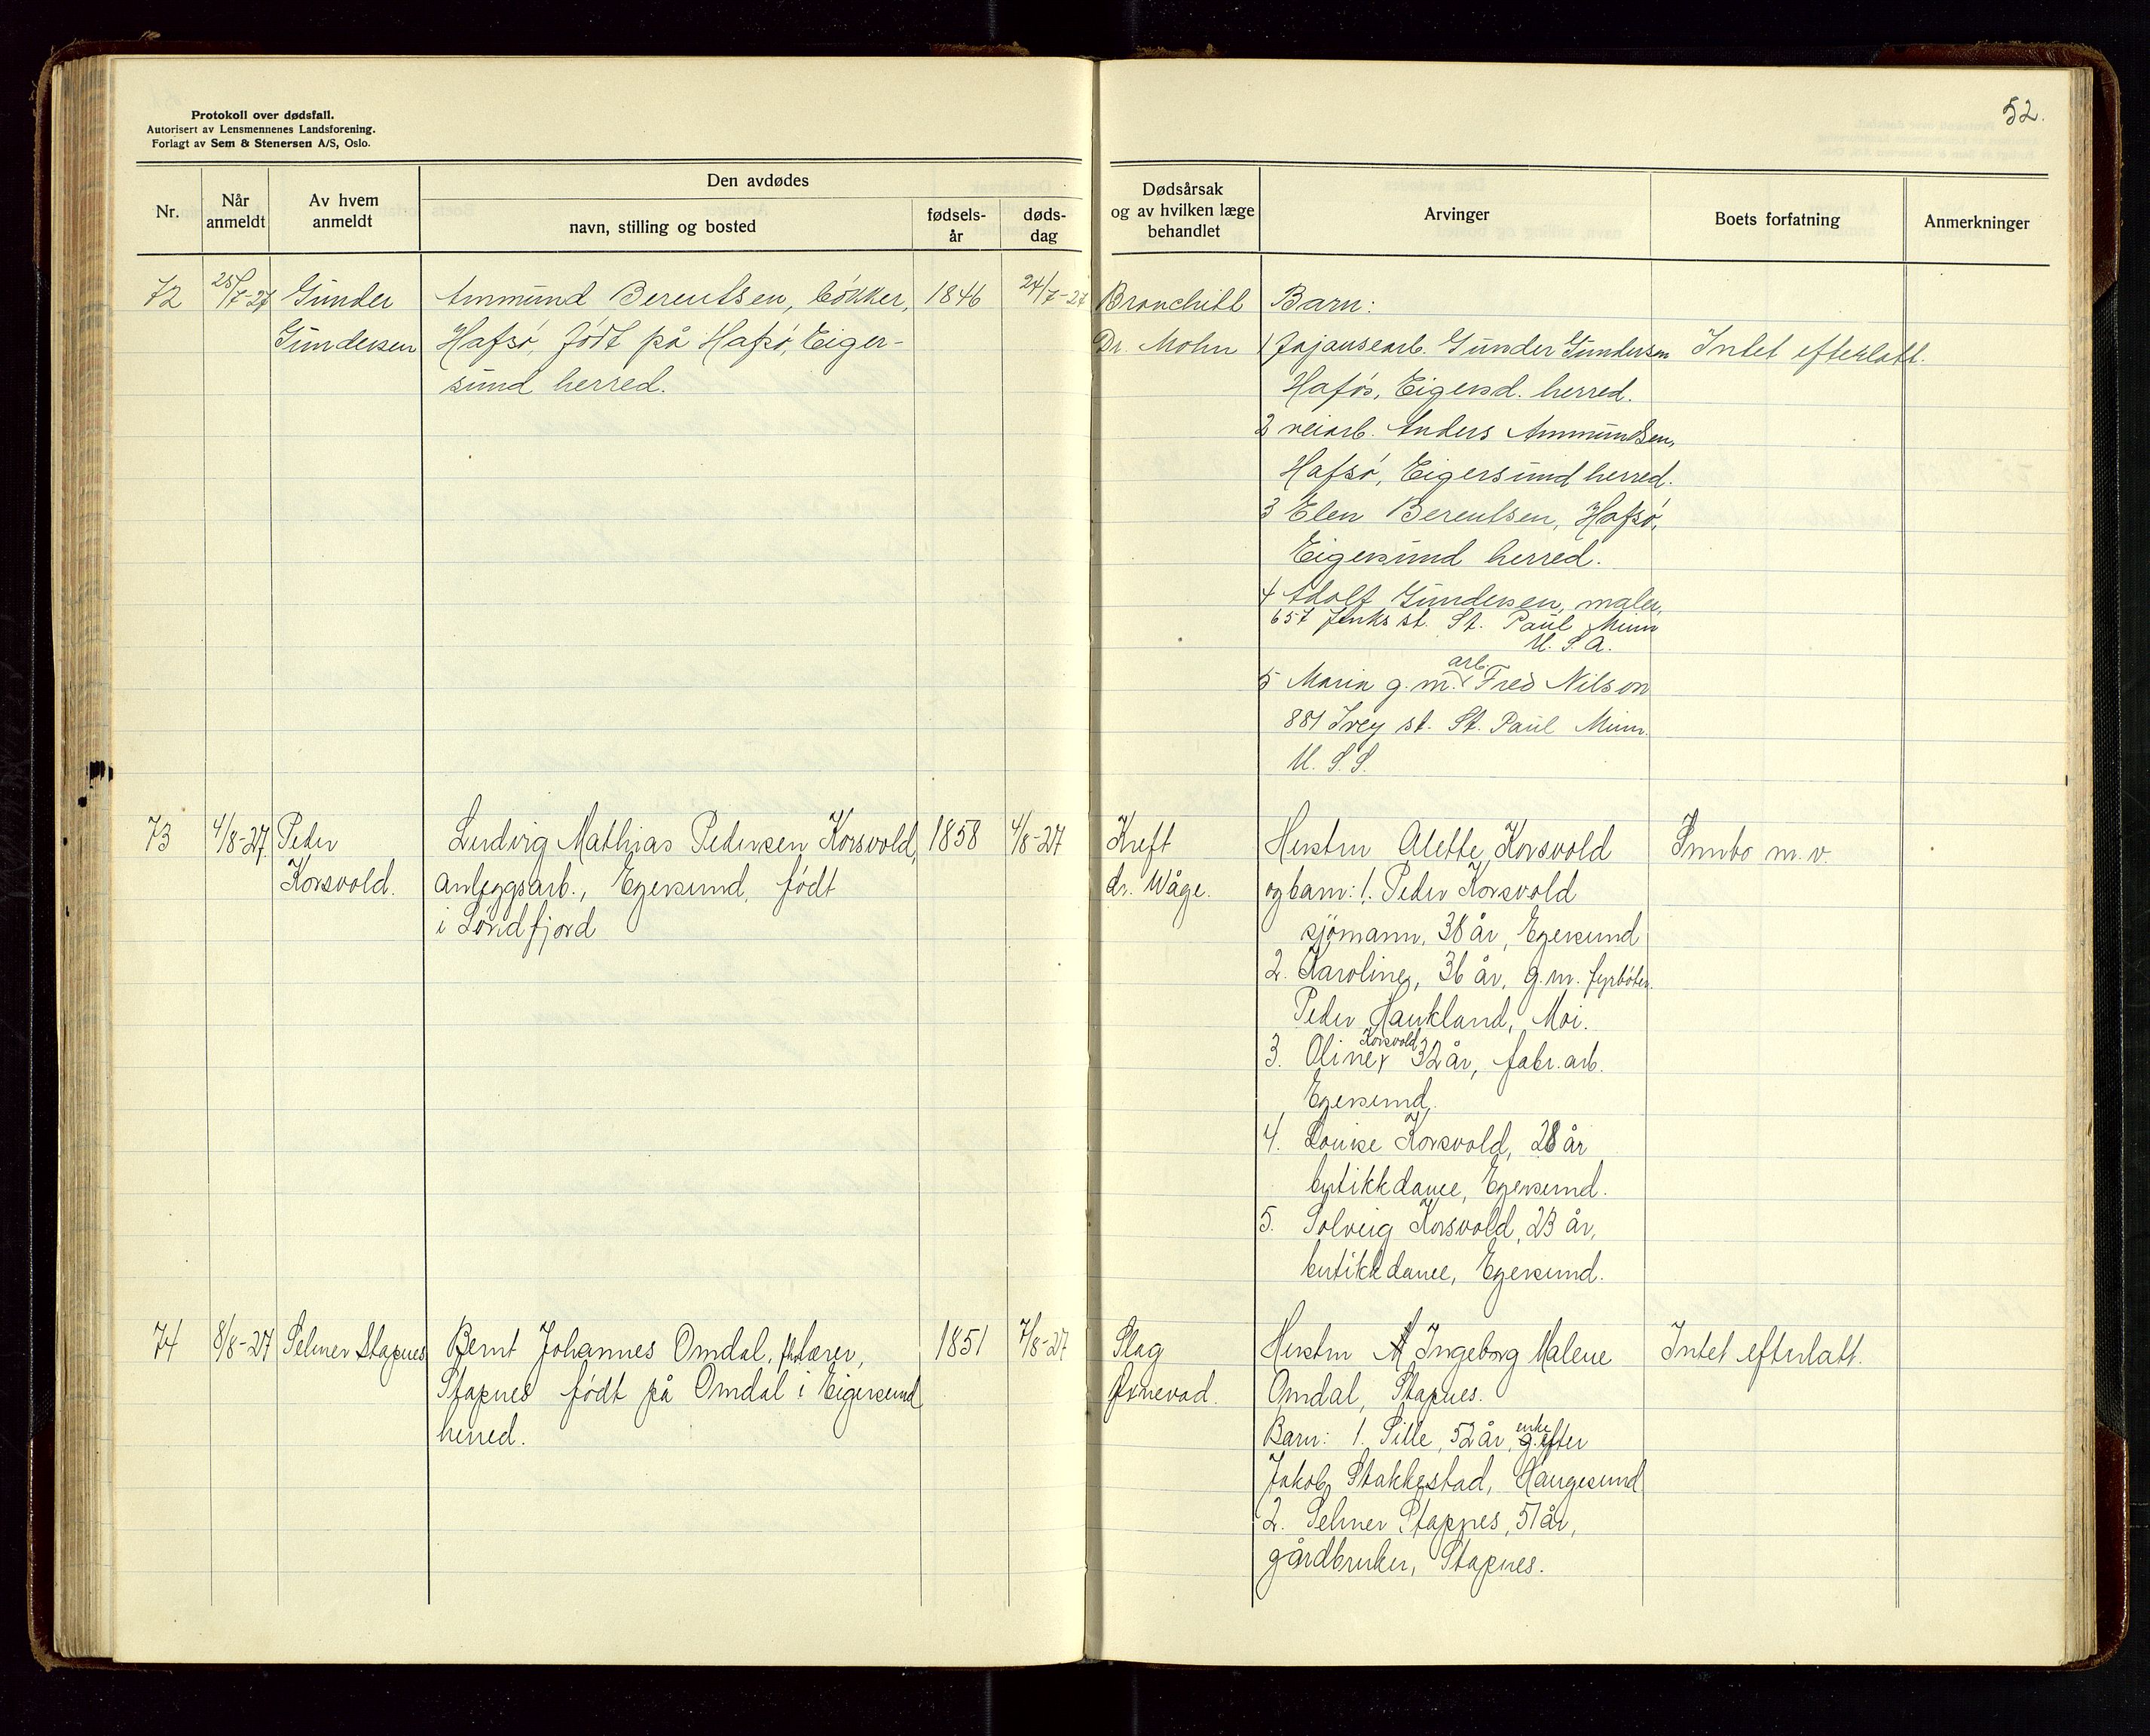 Protokoll over dødsfall.
Autorisert av Lensmennenes Landsforening.
Forlagt av Sem & Stenersen A/S, Oslo.
52.
Nr.
Når anmeldt
Av hvem anmeldt
Den avdødes
navn, stilling og bosted
fødsels-år
døds-dag
Dødsårsak og av hvilken læge behandlet
Arvinger
Boets forfatning
Anmerkninger
72
25/7-27
Gunder
Gundersen
Ammund Berentsen, bökker,
Hafsö, födt på Hafsö, Eiger-
sund herred.
1846
24/7-27
Bronchitt
Dr. Mohn
Barn:
1 fajansearb. Gunder Gundersen
Hafös, Eigersd. herred.
2 veiarb. Anders Ammundsen,
Hafsö, Eigersund herred.
3 Elen Berentsen, Hafsö,
Eigersund herred.
4 Adolf Gundersen, maler,
657 Jenks st. St. Paul Minn
U. S. A.
5 Marin g. m. arb. Fred Nilson
881 Ivey st. St. Paul Minn.
U. S. S.
Intet efterlatt.
73
4/8-27.
Peder
Korsvold.
Ludvig Mathias Pedersen Korsvold,
anleggsarb., Egersund, födt
i Söndfjord
1858
4/8-27
Kreft
dr. Wåge.
Hustru Alette Korsvold
og barn: 1. Peder Korsvold
sjömann, 38 år, Egersund
2. Karoline, 36 år, g. m. fyrböter
Peder Haukland, Moi.
3. Oline Korsvold 32 år, fabr. arb.
Egersund.
4. Louise Korsvold, 28 år
butikkdame, Egersund.
5. Solveig Korsvold, 23 år,
butikkdame, Egersund.
Innbo m. v.
74
8/8-27
Selmer Stapnes
Bernt Johannes Omdal, lærer,
Stapnes födt på Omdal i Eigersund
herred.
1851
7/8-27
Slag
Öxnevad.
Hustru Ingeborg Malene
Omdal, Stapnes.
Barn: 1. Sille, 52 år, enke efter
Jakob Stakkestad, Haugesund
2. Selmer Stapnes, 51 år,
gårdbruker, Stapnes.
Intet efterlatt.